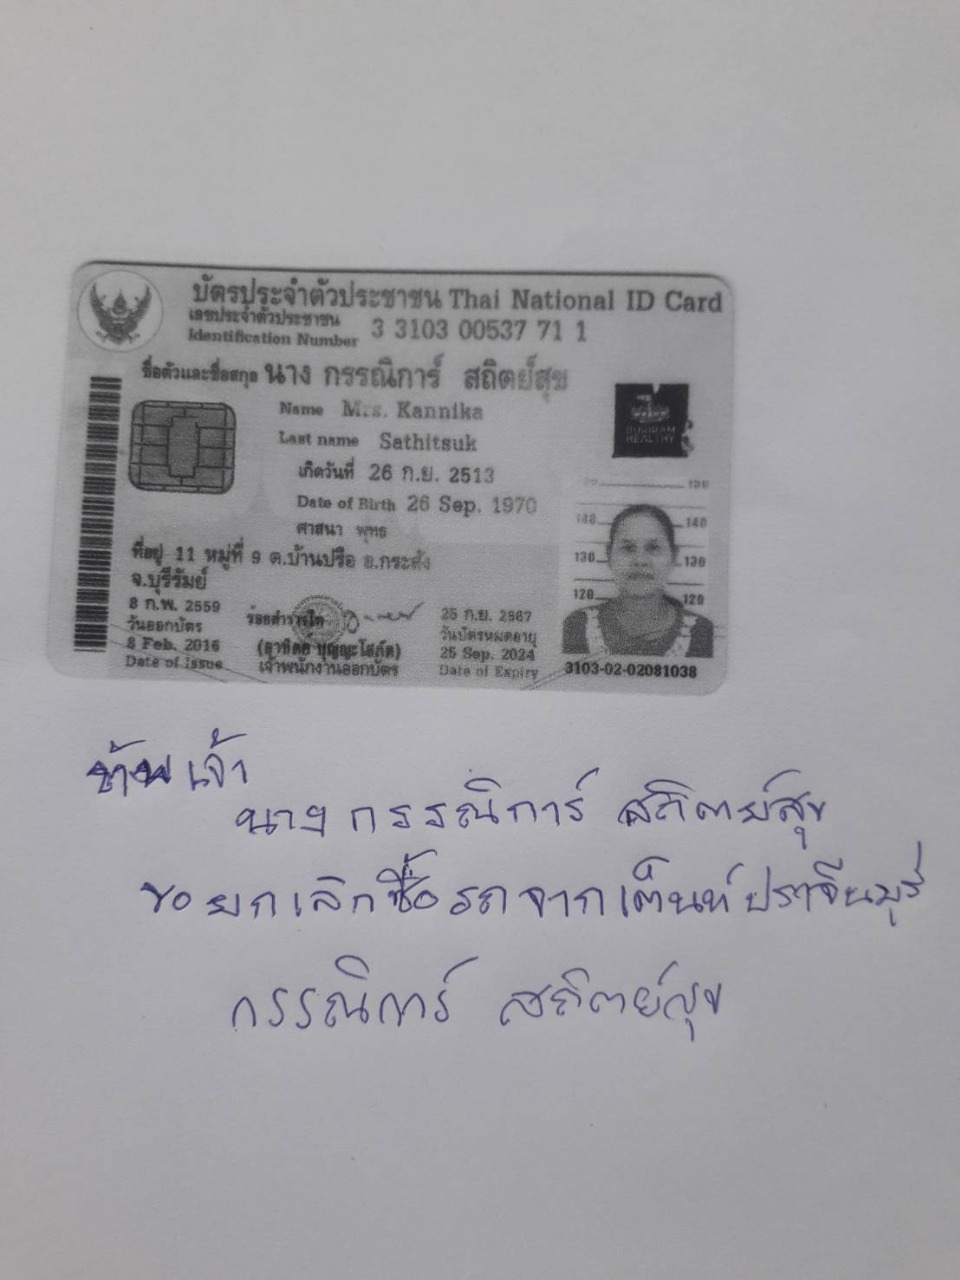 บัตรประจำตัวประชาชน Thai National ID Card
เลขประจำตัวประชาชน
Identification Number 3 3103 00537 71 1
ชื่อตัวและชื่อสกุล นาง กรรณิการ์ สถิตย์สุข
Name Mrs. Kannika
Last name Sathitsuk
เกิดวันที่ 26 ก.ย. 2513
Date of Birth 26 Sep. 1970
ศาสนา พุทธ
ที่อยู่ 11 หมู่ที่ 9 ต.บ้านปรือ อ.กระสัง
จ.บุรีรัมย์
8 ก.พ. 2559
วันออกบัตร
8 Feb. 2016
Date of Issue
ร้อยตำรวจโท
(อาทิตย์ บุญญะโสภัต)
เจ้าพนักงานออกบัตร
25 ก.ย. 2567
วันบัตรหมดอายุ
25 Sep. 2024
Date of Expiry
BURIRAM
HEALTHY
150
140 140
130 130
120 120
3103-02-02081038
ข้าพเจ้า
นาง กรรณิการ์ สถิตย์สุข
ขอยกเลิกซื้อรถจากเต็นท์ปราจีนบุรี
กรรณิการ์ สถิตย์สุข